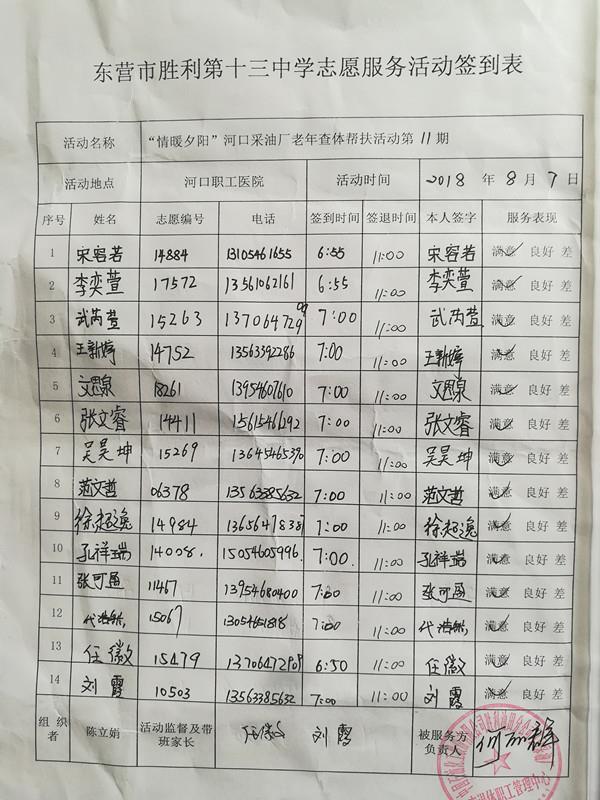 东营市胜利第十三中学志愿服务活动签到表
活动名称 “情暖夕阳”河口采油厂老年查体帮扶活动第 11 期
活动地点 河口职工医院 活动时间 2018 年 8 月 7 日
序号 姓名 志愿编号 电话 签到时间 签退时间 本人签字 服务表现
1 宋容若 14884 13105461655 6:55 11:00 宋容若 满意 良好 差
2 李奕萱 17572 13561062161 6:55 11:00 李奕萱 满意 良好 差
3 武芮萱 15263 13706472909 7:00 11:00 武芮萱 满意 良好 差
4 王新婷 14752 13563392286 7:00 11:00 王新婷 满意 良好 差
5 18261 13954607610 7:00 11:00 满意 良好 差
6 张文睿 14411 15615461292 7:00 11:00 张文睿 满意 良好 差
7 吴昊坤 15269 13645465390 7:00 11:00 吴昊坤 满意 良好 差
8 范文哲 06378 13563385632 7:00 11:00 范文哲 满意 良好 差
9 徐超逸 14984 13656478387 7:00 11:00 徐超逸 满意 良好 差
10 孔祥瑞 14008. 15054605996. 7:00. 11:00 孔祥瑞 满意 良好 差
11 张可盈 11467 13954680400 7:00 11:00 张可盈 满意 良好 差
12 代浩然 15067 13054651818 7:00 11:00 代浩然 满意 良好 差
13 任微 15479 13706472909 6:50 11:00 任微 满意 良好 差
14 刘霞 10503 13563385632 7:00 11:00 刘霞 满意 良好 差
组织者 陈立娟 活动监督及带班家长 任微 刘霞 被服务方负责人